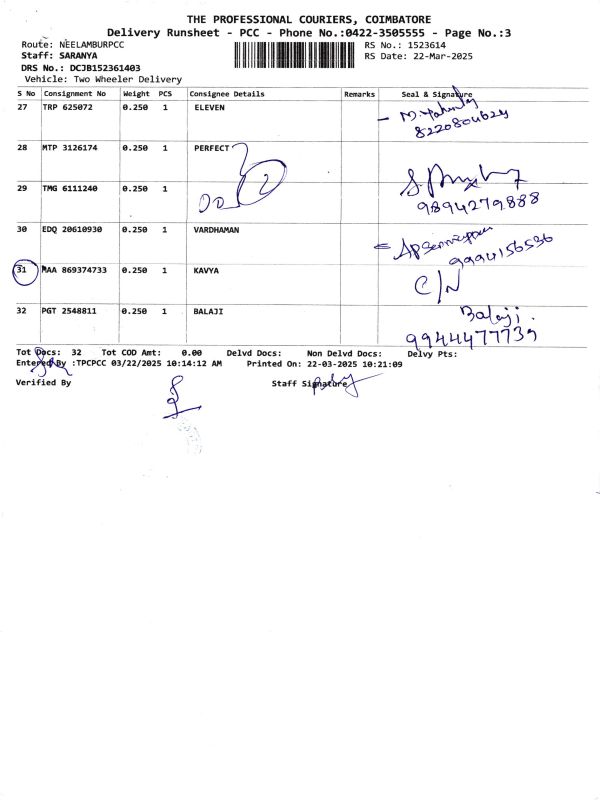 THE PROFESSIONAL COURIERS, COIMBATORE
Delivery Runsheet - PCC - Phone No.:0422-3505555 - Page No.:3
Route: NEELAMBURPCC
RS No.: 1523614
Staff: SARANYA
RS Date: 22-Mar-2025
DRS No.: DCJB152361403
Vehicle: Two Wheeler Delivery
S No Consignment No Weight PCS Consignee Details Remarks Seal & Signature
27 TRP 625072 0.250 1 ELEVEN
8220804624
28 MTP 3126174 0.250 1 PERFECT
29 TMG 6111240 0.250 1
9894279888
30 EDQ 20610930 0.250 1 VARDHAMAN
9994156536
31 MAA 869374733 0.250 1 KAVYA
C/N
32 PGT 2548811 0.250 1 BALAJI
Balaji.
9944477739
Tot Docs: 32 Tot COD Amt: 0.00 Delvd Docs: Non Delvd Docs: Delvy Pts:
Entered By :TPCPCC 03/22/2025 10:14:12 AM Printed On: 22-03-2025 10:21:09
Verified By Staff Signature